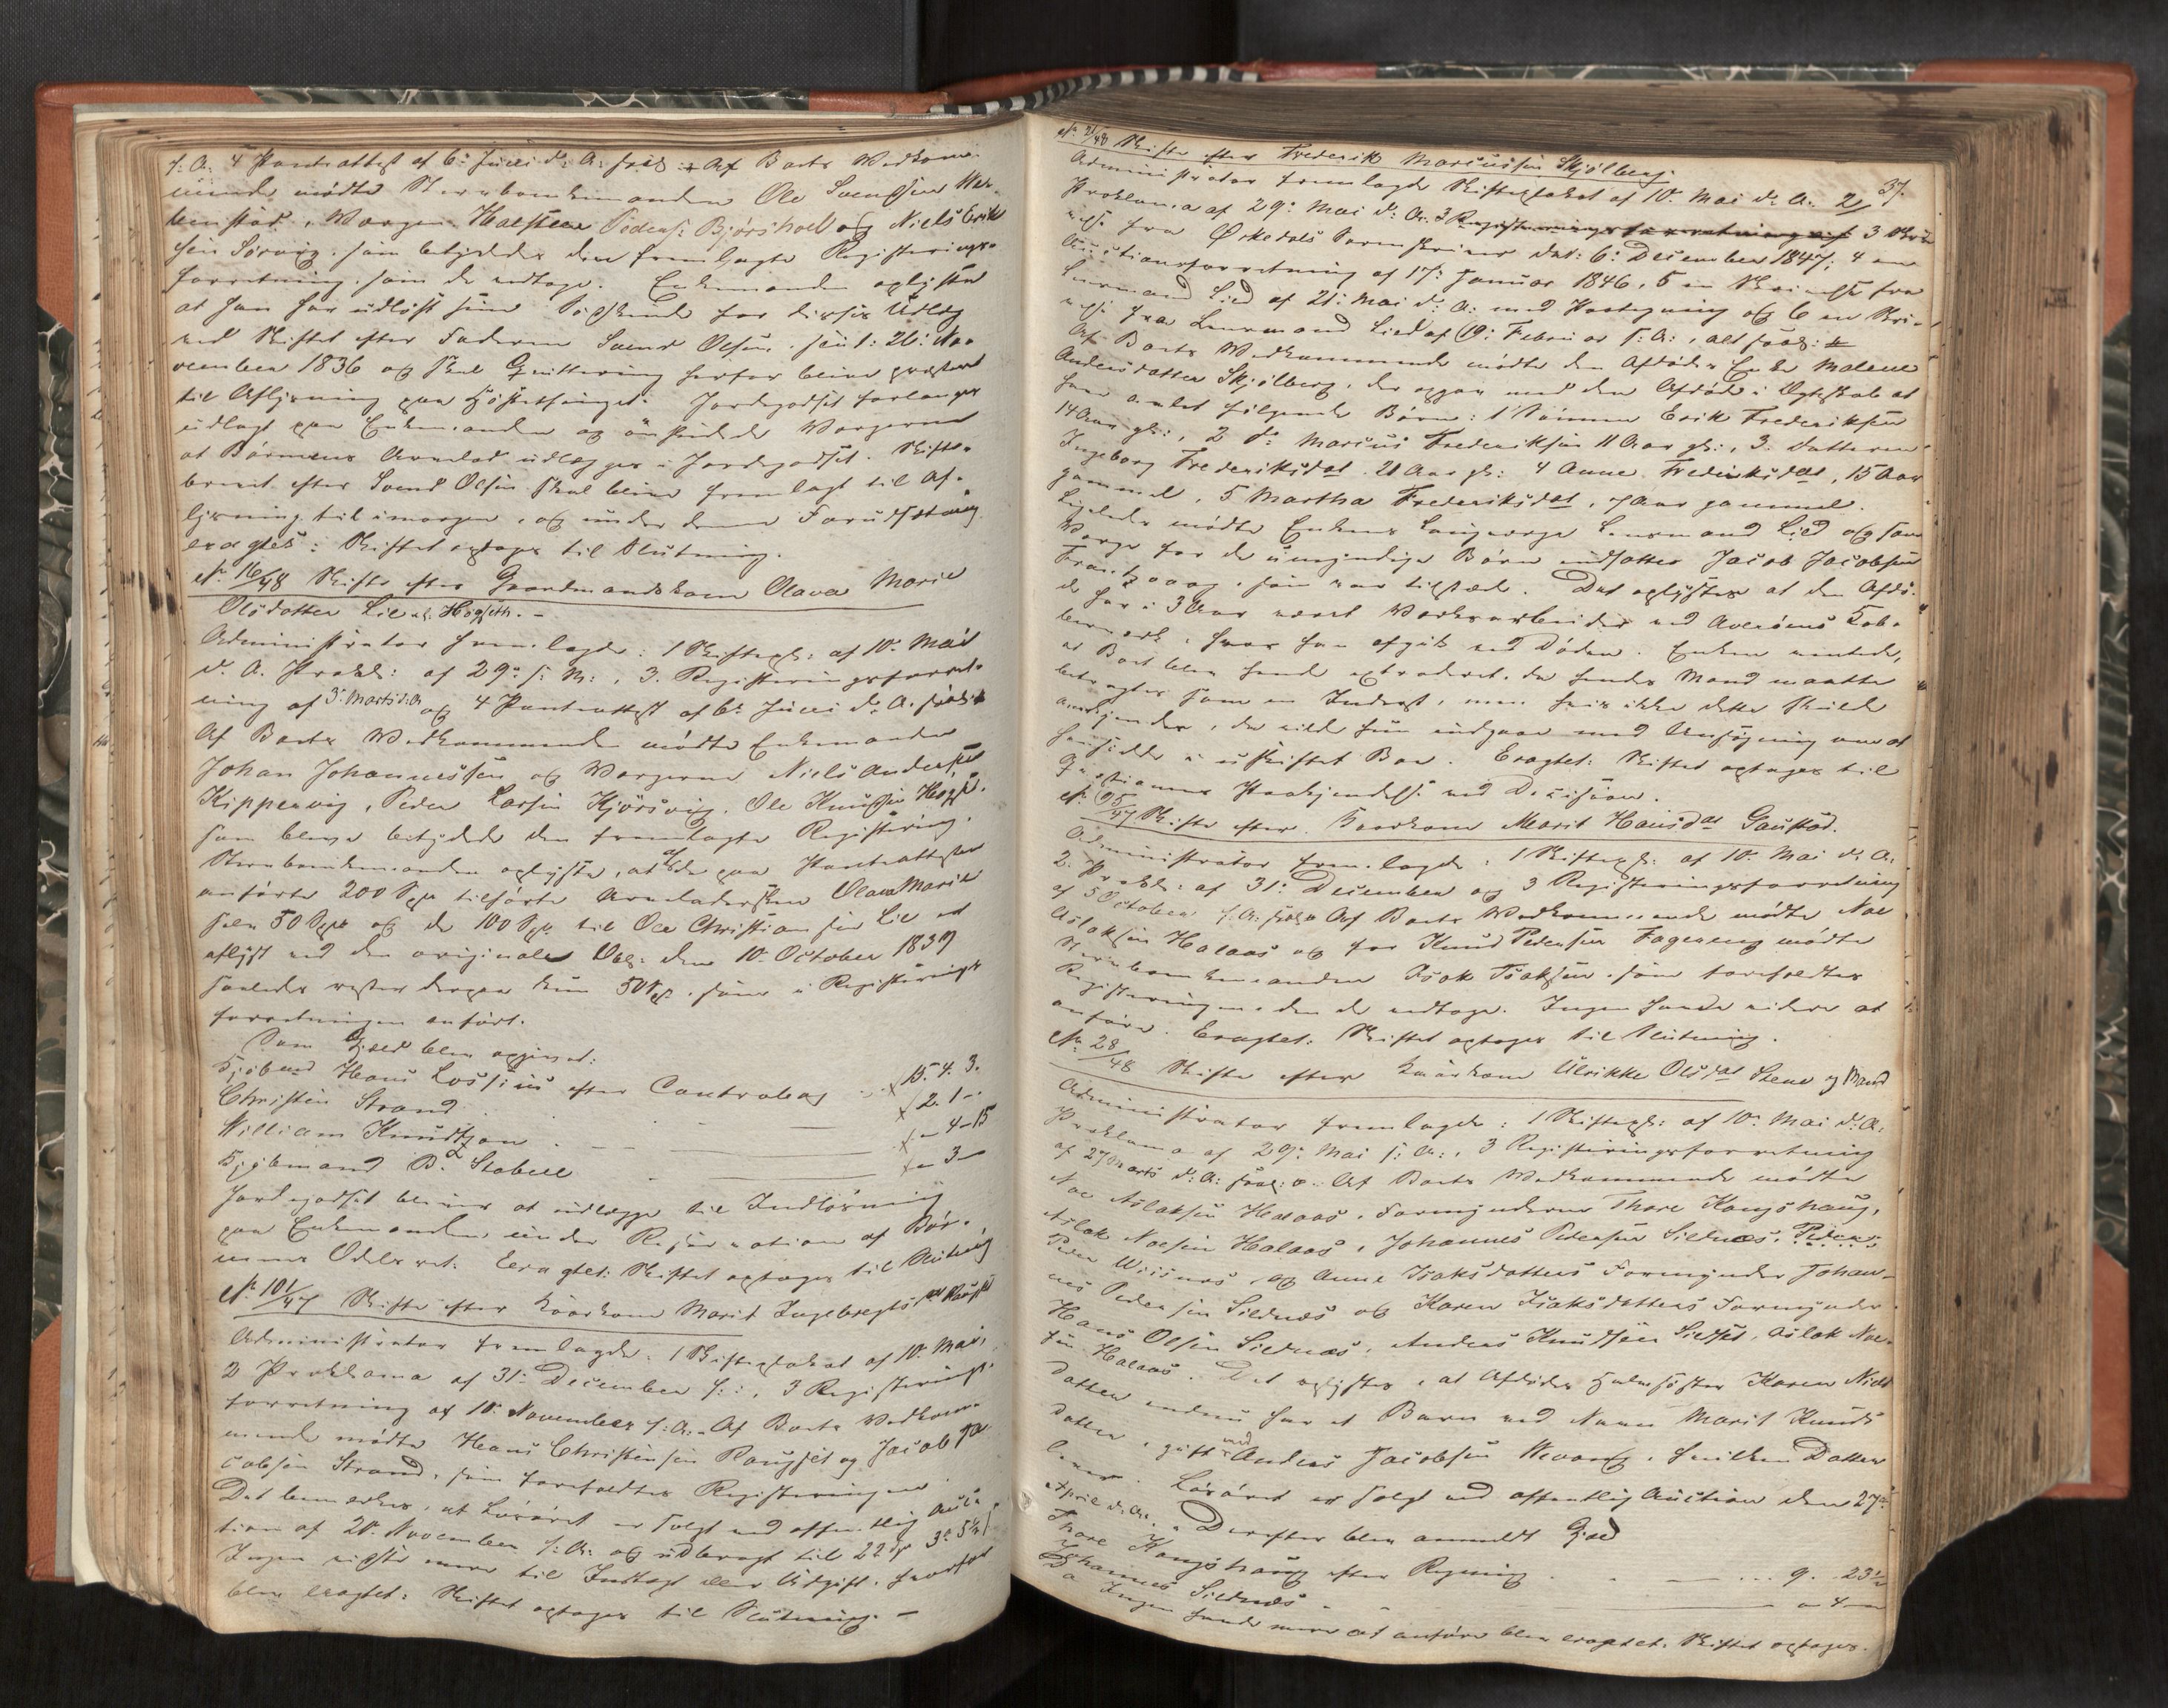 f: A: 4 Panteattest af 6te Juni d: A: fræl: Af Boets Vedkom-
mende mødte Stervboenkemanden Ole Svendsen Ver-
lenstad, Vorgen Halsteen Peders: Bjørsvoll og Niels Erik
sen Sørvig, som betydedes den fremlagte Registerings-
forretning, som de vedtoge. Enkemanden oplyste
at han har udløst sine Sødskende for disses Udlæg
ved Skiftet efter Faderen Svend Olsen, slut: 26: No-
vember 1836 og skal Qvittering herfor blive præstert
til Aflysning paa Høsttinget. Jordegodset forlanges
udlagt paa Enkemanden og ønskede Vorgerne
at Børnenes Arvelod udlægges i Jordegodset. Skifte-
brevet efter Svend Olsen skal blive fremlagt til Af-
lysning til imorgen, og under denne Forudsætning
eragtes: Skiftet optages til Slutning.
No 16/48 Skifte efter Gaardmandskone Olava Marie
Olsdatter Lie ell. Høgseth. -
Administrator fremlagde: 1 Skiftepk: af 10de Mai
d. A. Prokl: af 29de s: M:, 3. Registeringsforret-
ning af 3. Marts d. A. og 4 Panteattest af 6te Juni d. A. fræl:
Af Boets Vedkommende mødte Enkemanden
Johan Johannessen og Vorgerne Niels Andersen
Kippervig, Peder Larsen Kjørsvig, Ole Knudsen Høgset,
som bleve betydede den fremlagte Registering.
Stervboenkemanden oplyste, at af de paa Pantattesten
anførte 200 Spd tilhørte Arveladersken Olava Marie
selv 50 Spd og de 100 Spd til Ole Christiansen Lie er
aflyst ved den originale Obl: den 10de October 1839
saaledes rester derpaa kun 50 Spd, som i Registerings
forretningen anført.
Som Gjæld blev opgivet:
Kjøbmd Hans Lossius efter Contrabog .. x 15. 4. 3.
Christen Strand . x 2. 1 -.
William Knudtzon . - - x - 4 - 15
Kjøbmand B. Stabell - - x - 3 -
Jordegodset bliver at udlægge til Indløsning
paa Enkemanden under Reservation af Bør-
nenes Odelsret. Eragtet: Skiftet optages til Slutning
No 101/47 Skifte efter Kaarkone Marit Ingebregtsdat Raugset
Administrator fremlagde: 1 Skifteplakat af 10de Mai,
2 Proklama af 31: December f: :, 3 Registerings-
forretning af 10de November f: A: - Af Boets Vedkom-
mende mødte Hans Christensen Raugset og Jacob Ja-
cobsen Strand, som foreholdtes Registeringen
Det bemærkes, at Løsøret er solgt ved offentlig Auk-
tion af 20de November f: A: og udbragt til 22 Spd 3 ort 5 1/2 s
Ingen vidste mere til Indtægt eller Udgift, hvorfor
blev eragtet: Skiftet optages til Slutning. -
37.
No 21/48 Skifte efter Frederik Marcussen Skjølberg.
Administrator fremlagde Skifteplakat af 10de Mai d. A. 2/
Proklama af 29de Mai d. A. 3 Registeringsforretning af 3 Skri-
velse fra Ørkedals Sorenskriver dat: 6te December 1847, 4 en
Auctionsforretning af 17de Januar 1846, 5 en Skrivelse fra
Lensmand Lied af 21de Mai d: A: med Paategning og 6 en Skri-
velse fra Lensmand Lied af 19: Februar f: A:, alt fræl:
Af Boets Vedkommende mødte den Afdødes Enke Malene
Andersdatter Skjølberg, der opgav med den Afdøde i Ægteskab at
have avlet følgende Børn: 1 Sønnen Erik Frederiksen
14 Aar gl:, 2 do Marcus Frederiksen 11 Aar gl:, 3. Datteren
Ingeborg Frederiksdat 21 Aar gl: 4 Anne Frederiksdat, 15 Aar
gammel, 5 Martha Frederiksdat, 7 Aar gammel.
Ligeledes mødte Enkens Laugværge Lensmand Lied og som
Vorge for de umyndige Børn indsattes Jacob Jacobsen
, som var tilstæde. Det oplystes at den Afdø-
de har i 3 Aar været Verksarbeider ved Aleøens Kob-
berverk, hvor han afgik ved Døden. Enken ventede,
at Boet blev hende extraderet, da hendes Mand maatte
betragtes som en Inderst, men hvis ikke dette skulde
ankjendes, da vilde hun indgaae med Ansøgning om at
hensidde i uskiftet Boe. Eragtet: Skiftet optages til
Qvæstionens Paakjendelse ved Decision.
No 95/47 Skifte efter Kaarkone Marit Hansdat Gaustad.
Administrator fremlagde: 1 Skiftepk: af 10de Mai d. A:
2. Prokl: af 31: December og 3 Registeringsforretning
af 5 October f: A: fræl: Af Boets Vedkommende mødte Noe
Aslaksen Halaas og for Knud Pedersen Fagereng mødte
Stervboenkemanden Isak Isaksen, som foreholdtes
Registeringen den de vedtoge. Ingen havde videre at
anføre. Eragtet: Skiftet optages til Slutning.
No 28/48 Skifte efter Kaarkone Ulrikke Olsdat Stene og Mand
Administrator fremlagde: 1 Skiftepk: af 10de Mai d. A:
Proklama af 29de Mai s: A:, 3 Registeringsforretning
af 27 Marts d. A: fræl: Af Boets Vedkommende mødte
Noe Aslaksen Halaas, Formynderne Thore Kongshaug,
Aslak Noesen Halaas, Johannes Pedersen Sildnæs, Peder
Peder Wiisnes, og Anne Isaksdatters Formynder Johan-
nes Pedersen Sildnæs og Karen Isaksdatters Formynder
Hans Olsen Sildnæs, Anders Knudsen Sildset, Aslak Noe-
sen Halaas. Det oplystes, at Afdødes Halvsøster Karen Niels
datter endnu har et Barn ved Navn Marit Knuds
datter, gift med Anders Jacobsen Wevang, hvilken Datter
lever. Løsøret er solgt ved offentlig Auction den 27de
April d. A. Derefter blev anmeldt Gjæld
Thore Kongshaug efter Regning . . - ... 9. . 23 1/2
Johannes Sildnæs - - - 4 -
Ingen havde mere at anføre blev eragtet: Skiftet optages.